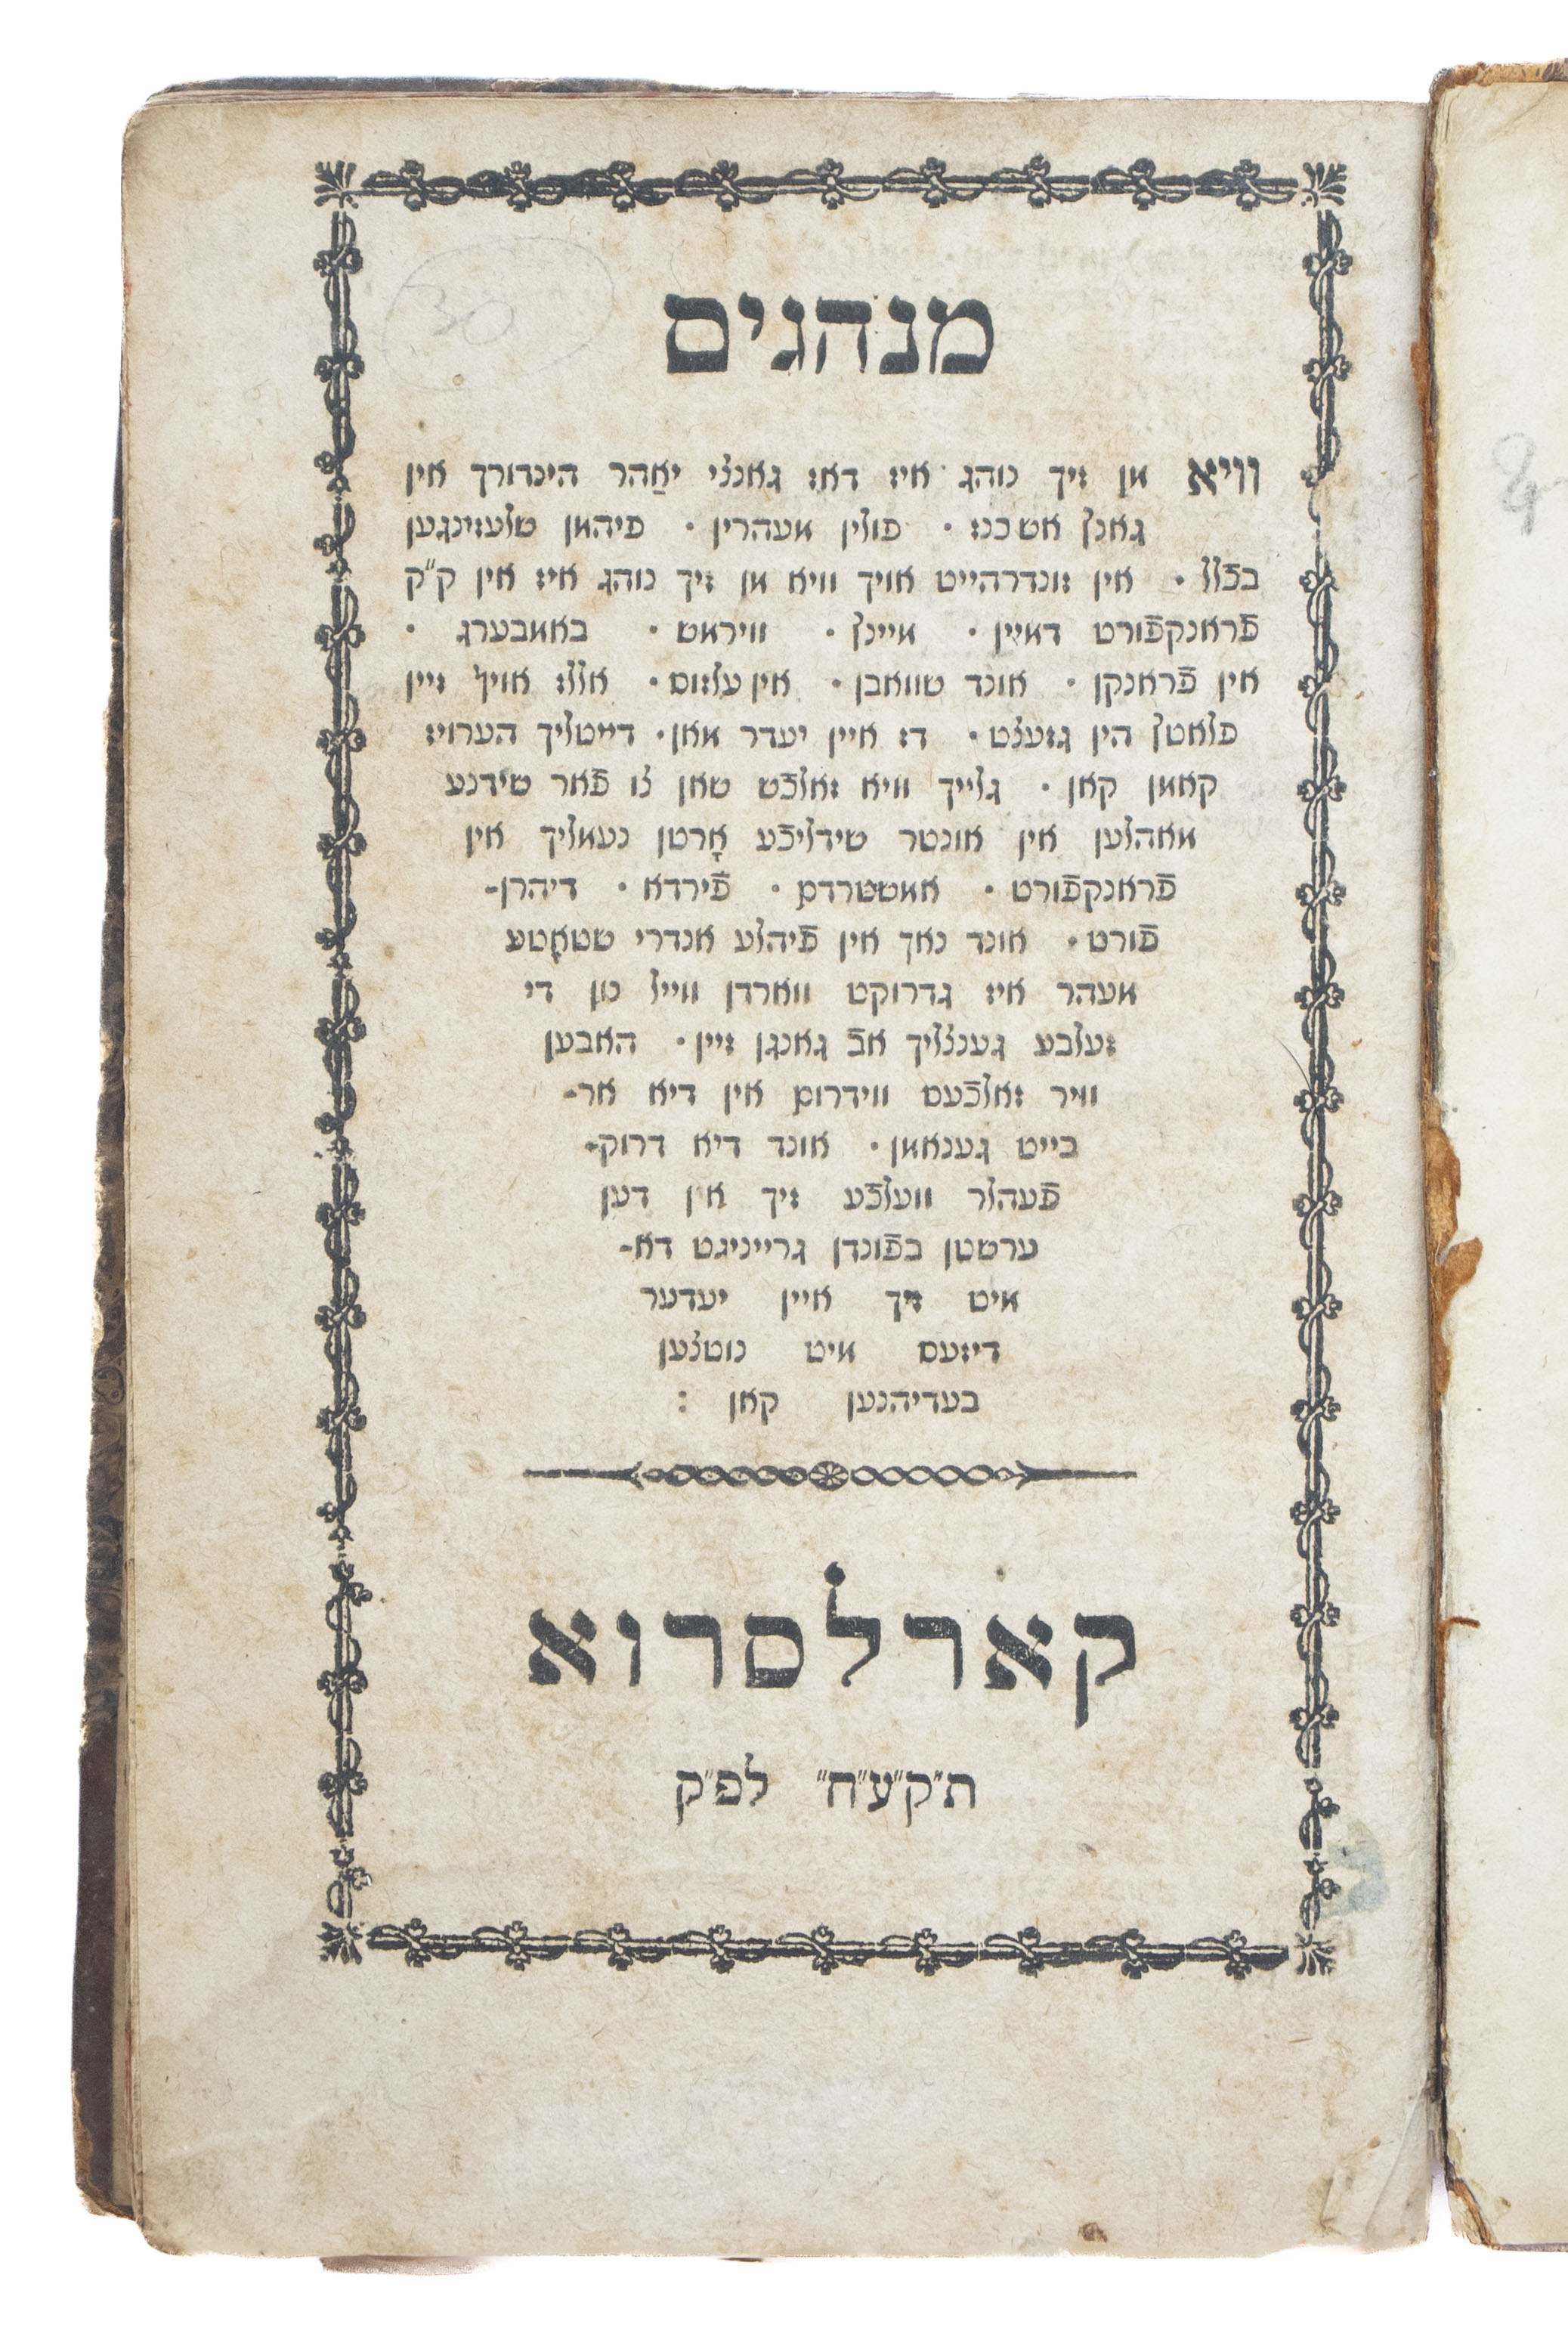 30
מנהגים
וויא מן זיך נוהג איז דאז גאנצי יאַהר הינדורך אין
גאנץ אשכנז · פולין מעהרין · פיהמן שלעזינגען
בכֿלל · אין זונדרהייט אויך וויא מן זיך נוהג איז אין ק״ק
פֿראנקפֿורט דמיין · מיינץ · ווירמש · באמבערג ·
אין פֿראנקן · אונד שוואבן · אין עלזוס · אללז אויף זיין
פלאטץ הין גזעצט · דז איין יעדר מאן · דייטליך הערויז
קאמן קאן · גלייך וויא זאלכֿש שאן צו פֿאר שידנע
מאהלען אין אונטר שידליכֿע אָרטן נעמליך אין
פֿראנקפֿורט · אמשטרדם · פֿירדא · דיהרן-
פֿורט · אונד נאך אין פֿיהלע אנדרי שטאָטע
מעהר איז גדרוקט ווארדן ווייל נון די
זעלבע גענצליך אבֿ גאנגן זיין · האבען
וויר זאלכֿעס ווידרום אין דיא אר-
בייט גענאמן · אונד דיא דרוק-
פֿעהלר וועלכֿע זיך אין דען
ערשטן בפֿונדן גרייניגט דא-
מיט זיך איין יעדער
דיזעס מיט נוטצען
בעדיהנען קאן :
קארלסרוא
ת״ק״ע״ח״ לפ״ק